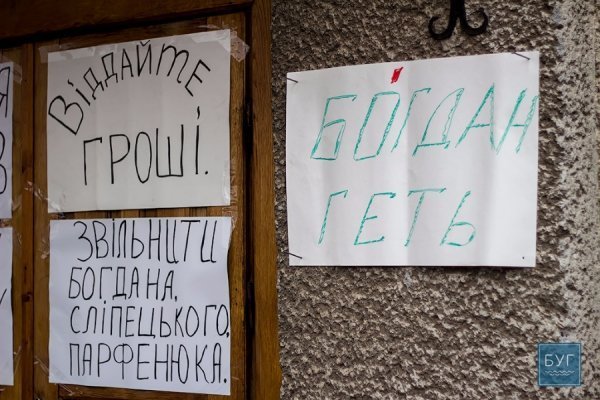 Віддайте
гроші.
Звільнити
Богдана,
Сліпецького,
Парфенюка.
БОГДАН
ГЕТЬ
БУГ